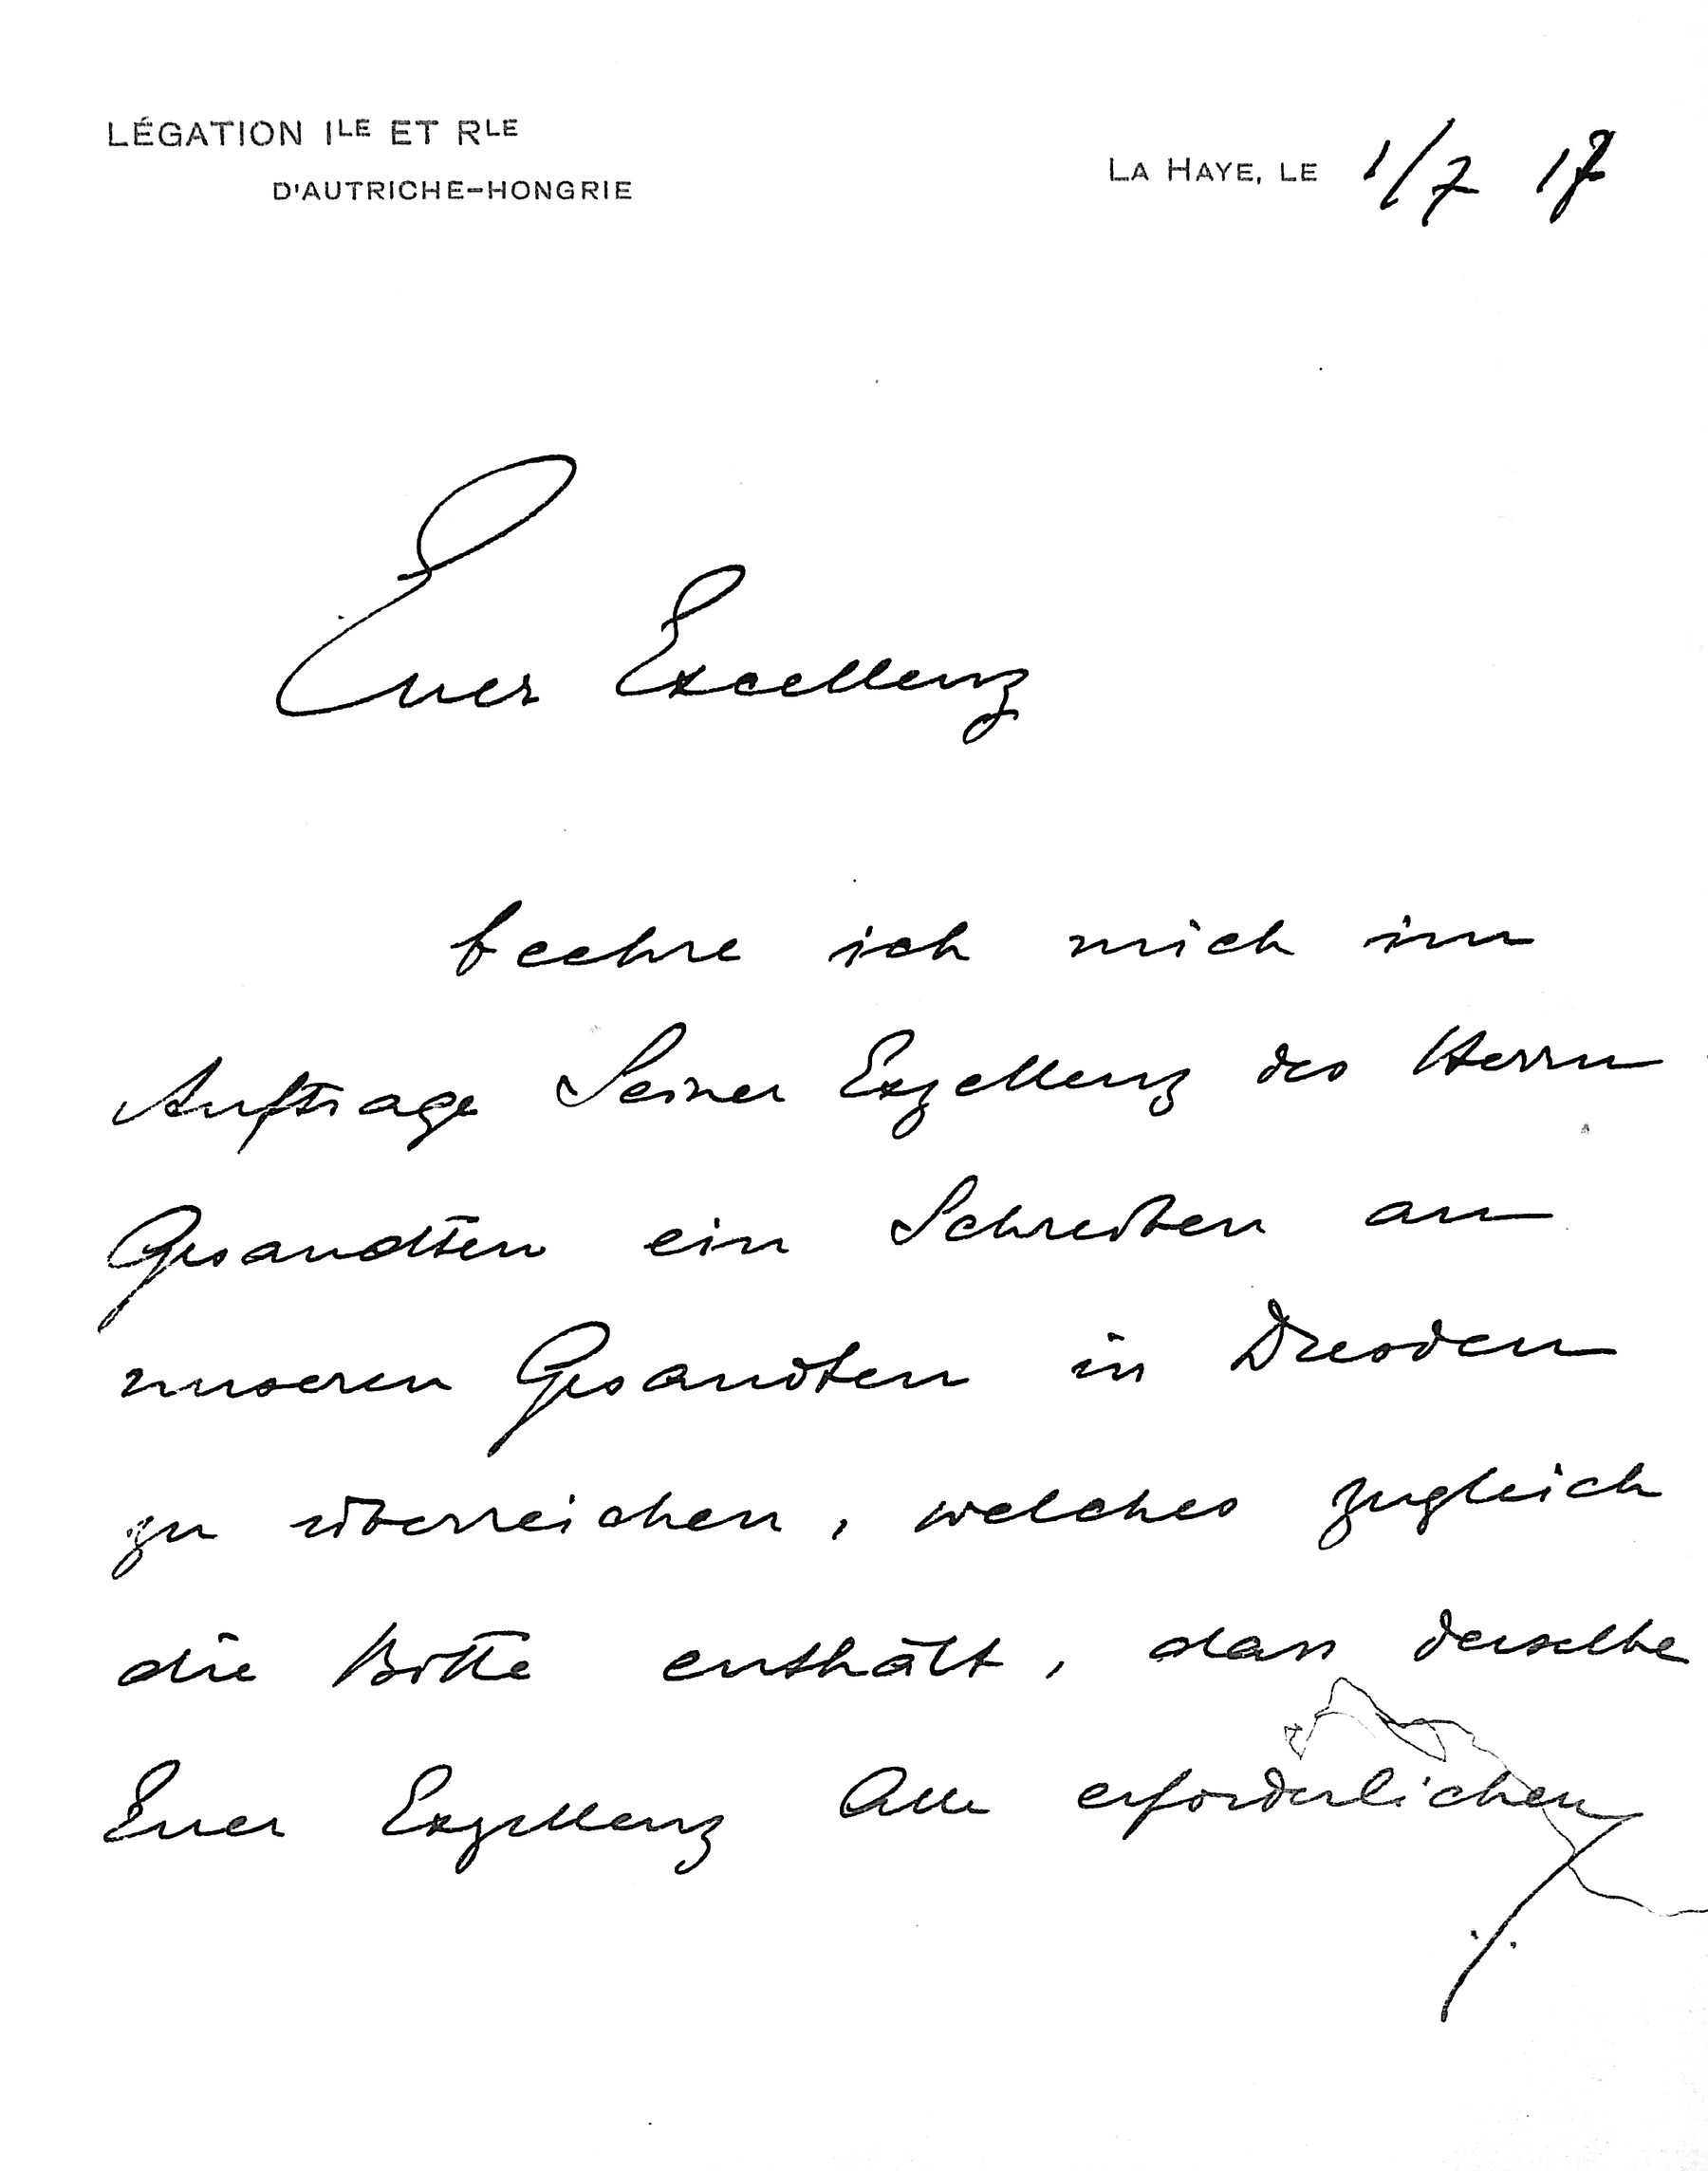 LÉGATION ILE ET RLE
D'AUTRICHE-HONGRIE
LA HAYE, LE 1/7 17
Euer Excellenz
beehre ich mich im
Auftrage Seiner Exzellenz des Herrn
Gesandten ein Schreiben an
unseren Gesandten in Dresden
zu überreichen, welches zugleich
die Bitte enthält, dass derselbe
Euer Exzellenz alle erforderlichen